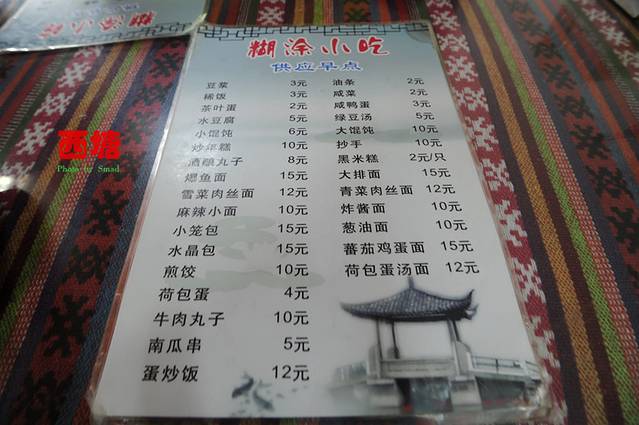 糊涂小吃
供应早点
豆浆 3元 油条 2元
稀饭 3元 咸菜 2元
茶叶蛋 2元 咸鸭蛋 3元
水豆腐 5元 绿豆汤 5元
小馄饨 6元 大馄饨 10元
炒年糕 10元 抄手 10元
酒酿丸子 8元 黑米糕 2元/只
爆鱼面 15元 大排面 15元
雪菜肉丝面 12元 青菜肉丝面 12元
麻辣小面 10元 炸酱面 10元
小笼包 15元 葱油面 10元
水晶包 15元 蕃茄鸡蛋面 15元
煎饺 10元 荷包蛋汤面 12元
荷包蛋 4元
牛肉丸子 10元
南瓜串 5元
蛋炒饭 12元
西塘
Photo by Smad